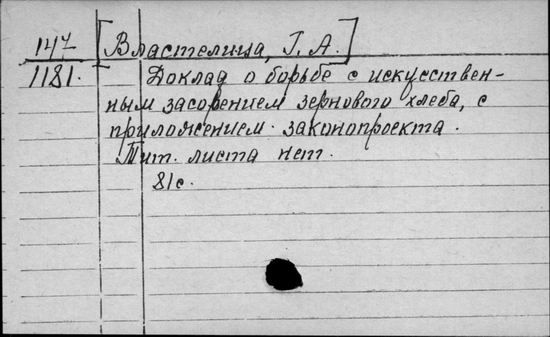 147
1181.
[Властелица, Г. А.]
Доклад о борьбе с искусствен-
ным засорением зернового хлеба, с
приложением законопроекта.
Тит. листа нет.
81с.